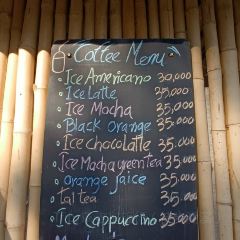 Coffee Menu
Ice Americano 30,000
Ice Latte 35.000
Ice Mocha 35.000
Black Orange 35.000
Ice chocoLatte 35.000
Ice Macha green tea 35.000
orange jaice 35.000
tai tea 35.000
Ice Cappuccino 35.000